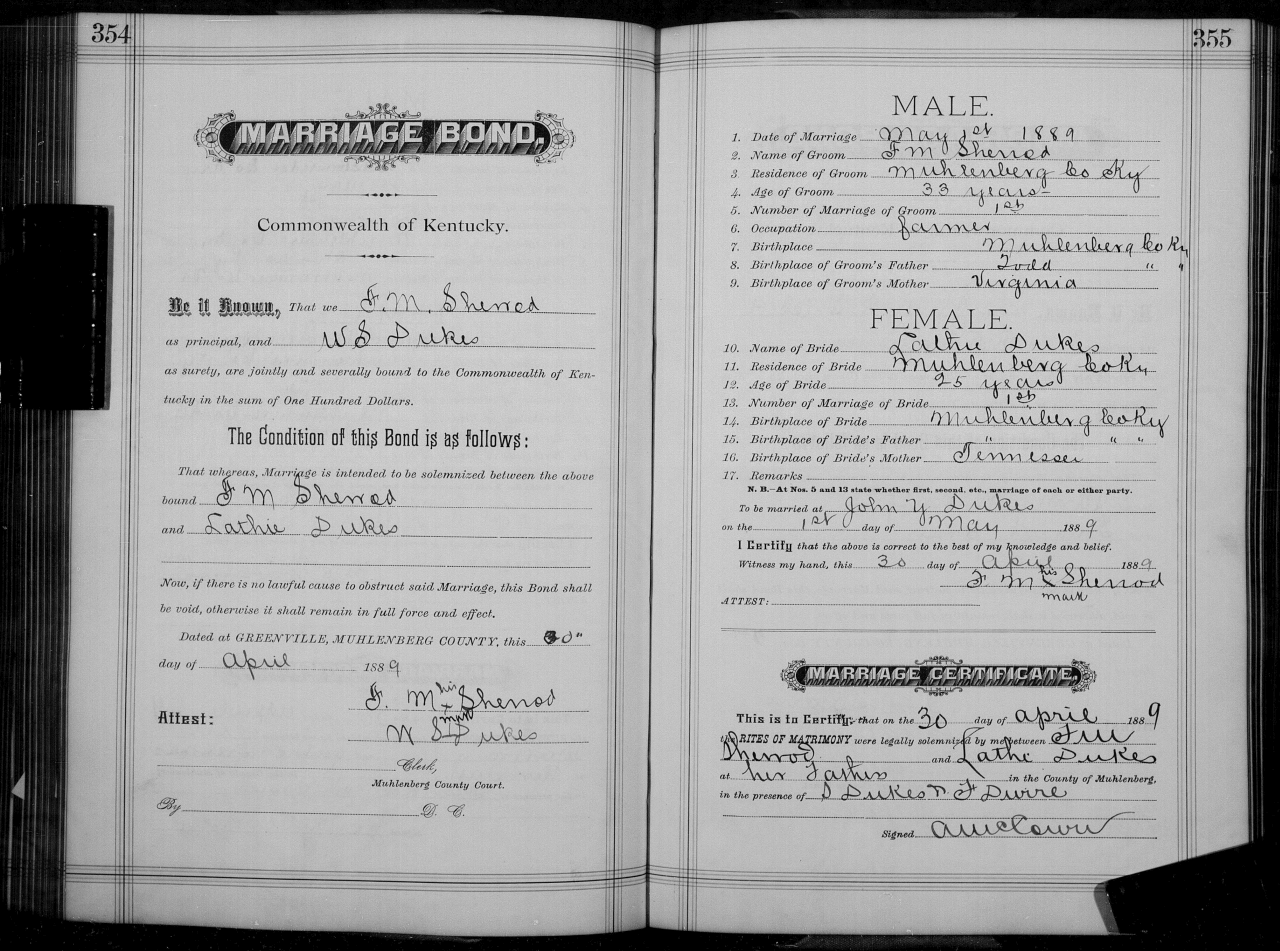 354
MARRIAGE BOND.
Commonwealth of Kentucky.
Be it Known, That we F. M. Sherrod
as principal, and W S Dukes
as surety, are jointly and severally bound to the Commonwealth of Ken-
tucky in the sum of One Hundred Dollars.
The Condition of this Bond is as follows:
That whereas, Marriage is intended to be solemnized between the above
bound F M Sherrod
and Lathie Dukes
Now, if there is no lawful cause to obstruct said Marriage, this Bond shall
be void, otherwise it shall remain in full force and effect.
Dated at GREENVILLE, MUHLENBERG COUNTY, this 30"
day of April 1889
F. M his x mark Sherrod
Attest:
W S Dukes
Clerk,
Muhlenberg County Court.
By D. C.
355
MALE.
1. Date of Marriage May 1st 1889
2. Name of Groom F M Sherrod
3. Residence of Groom Muhlenberg Co Ky
4. Age of Groom 33 years
5. Number of Marriage of Groom 1st
6. Occupation farmer
7. Birthplace Muhlenberg Co Ky
8. Birthplace of Groom's Father Todd " "
9. Birthplace of Groom's Mother Virginia
FEMALE.
10. Name of Bride Lathie Dukes
11. Residence of Bride Muhlenberg Co Ky
12. Age of Bride 25 years
13. Number of Marriage of Bride 1st
14. Birthplace of Bride Muhlenberg Co Ky
15. Birthplace of Bride's Father " " "
16. Birthplace of Bride's Mother Tennessee
17. Remarks
N. B.—At Nos. 5 and 13 state whether first, second, etc., marriage of each or either party.
To be married at John Y Dukes
on the 1st day of May 1889
I Certify that the above is correct to the best of my knowledge and belief.
Witness my hand, this 30 day of April 1889
F M his x mark Sherrod
ATTEST:
MARRIAGE CERTIFICATE.
This is to Certify, that on the 30 day of April 1889
the RITES OF MATRIMONY were legally solemnized by me between F M
Sherrod and Lathe Dukes
at her Fathers in the County of Muhlenberg,
in the presence of Dukes F
Signed